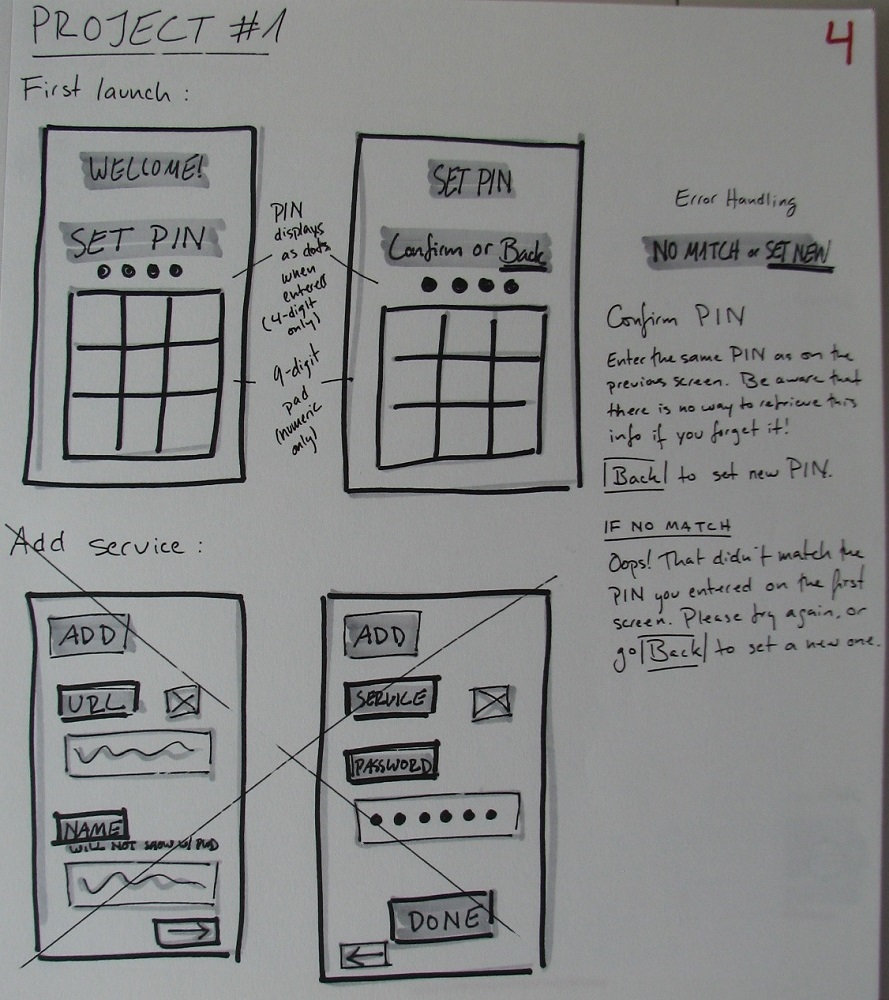 PROJECT #1
4
First launch :
WELCOME!
SET PIN
PIN
displays
as dots
when
entered
(4-digit
only)
9-digit
pad
(numeric
only)
SET PIN
Confirm or Back
Error Handling
NO MATCH or SET NEW
Confirm PIN
Enter the same PIN as on the
previous screen. Be aware that
there is no way to retrieve this
info if you forget it!
Back to set new PIN.
IF NO MATCH
Oops! That didn't match the
PIN you entered on the first
screen. Please try again, or
go Back to set a new one.
Add service :
ADD
URL
NAME
WILL NOT SHOW W/ PWD
ADD
SERVICE
PASSWORD
DONE